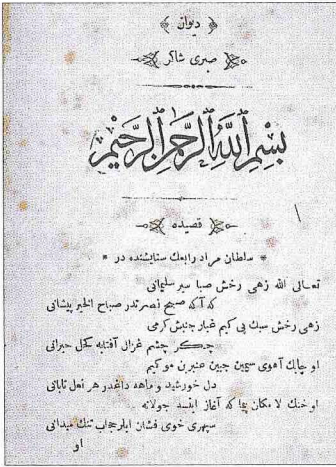 ديوان
صبری شاكر
بسم الله الرحمن الرحيم
قصيده
* سلطان مراد رابعك ستايشنده در *
تعالی الله زهی رخش صبا سير سليمانی
كه آكه صبح نصرتدر صباح الخير پيشانی
زهی رخش سبك پی كيم غبار جنبش كرمی
چكر چشم غزال آفتابه كحل حيرانی
او چابك آهوی سيمين جبين عنبرين مو كيم
دل خورشيد و ماهه داغدر هر نعل تابانی
او خنك لا مكان پيما كه آغاز ايلسه جولانه
سپهری خوی فشان ايلر حجاب تنك ميدانی
او